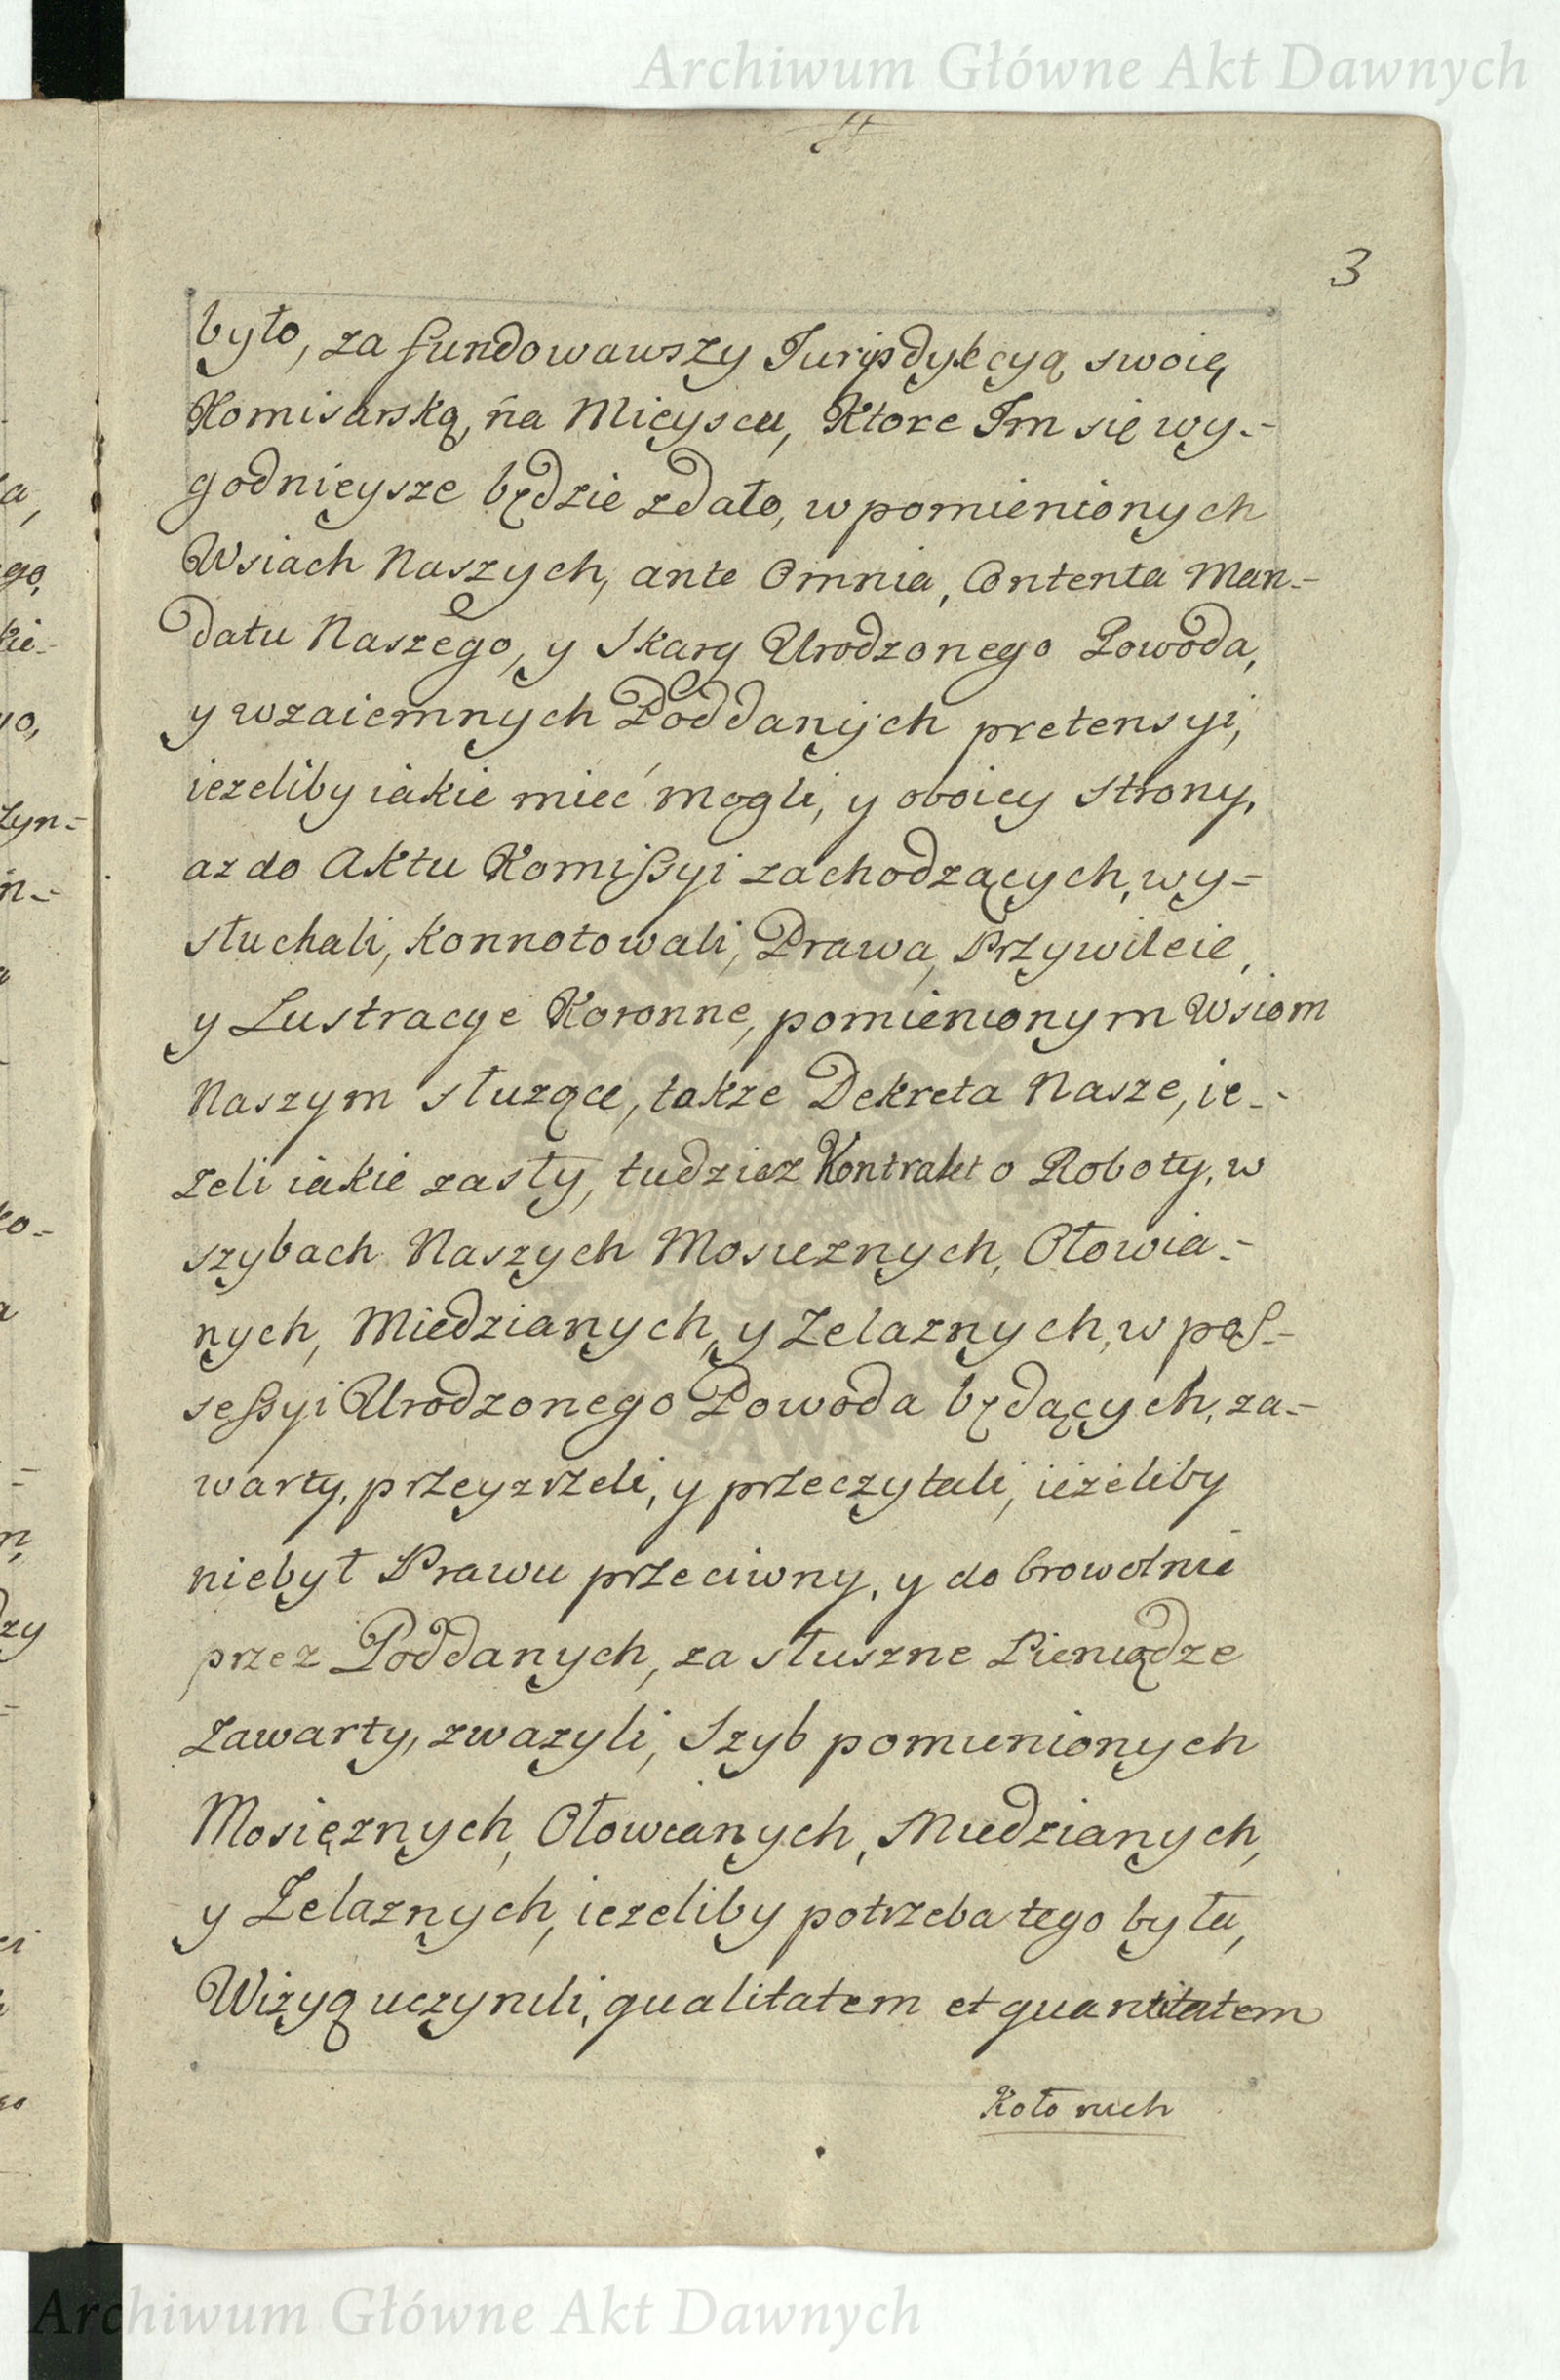 Archiwum Główne Akt Dawnych
3
było, za fundowawszy Jurysdykcyą swoię
Komisarską, na Mieyscu, Ktore Im się wy-
godnieysze będzie zdało, w pomienionych
Wsiach Naszych, ante Omnia, Contenta Man-
datu Naszego, y Skarg Urodzonego Powoda,
y wzaiemnych Poddanych pretensyi,
iezeliby iakie mieć mogli, y oboiey strony,
az do Aktu Komißyi zachodzących, wy-
słuchali, konnotowali, Prawa, Przywileie,
y Lustracye Koronne, pomienionym Wsiom
Naszym słuzące, takze Dekreta Nasze, ie-
zeli iakie zasły, tudziez Kontrakt o Roboty, w
szybach Naszych Mosieznych, Ołowia-
nych, Miedzianych, y Zelaznych, w pos-
seßyi Urodzonego Powoda będących, za-
warty, przeyzrzeli, y przeczytali, ieżeliby
niebył Prawu przeciwny, y dobrowolnie
przez Poddanych, za słuszne Pieniądze
zawarty, zwazyli, Szyb pomienionych
Mosięznych, Ołowianych, Miedzianych,
y Zelaznych, iezeliby potrzeba tego była,
Wizyą uczynili, qualitatem et quantitatem
Koło nich
Archiwum Główne Akt Dawnych